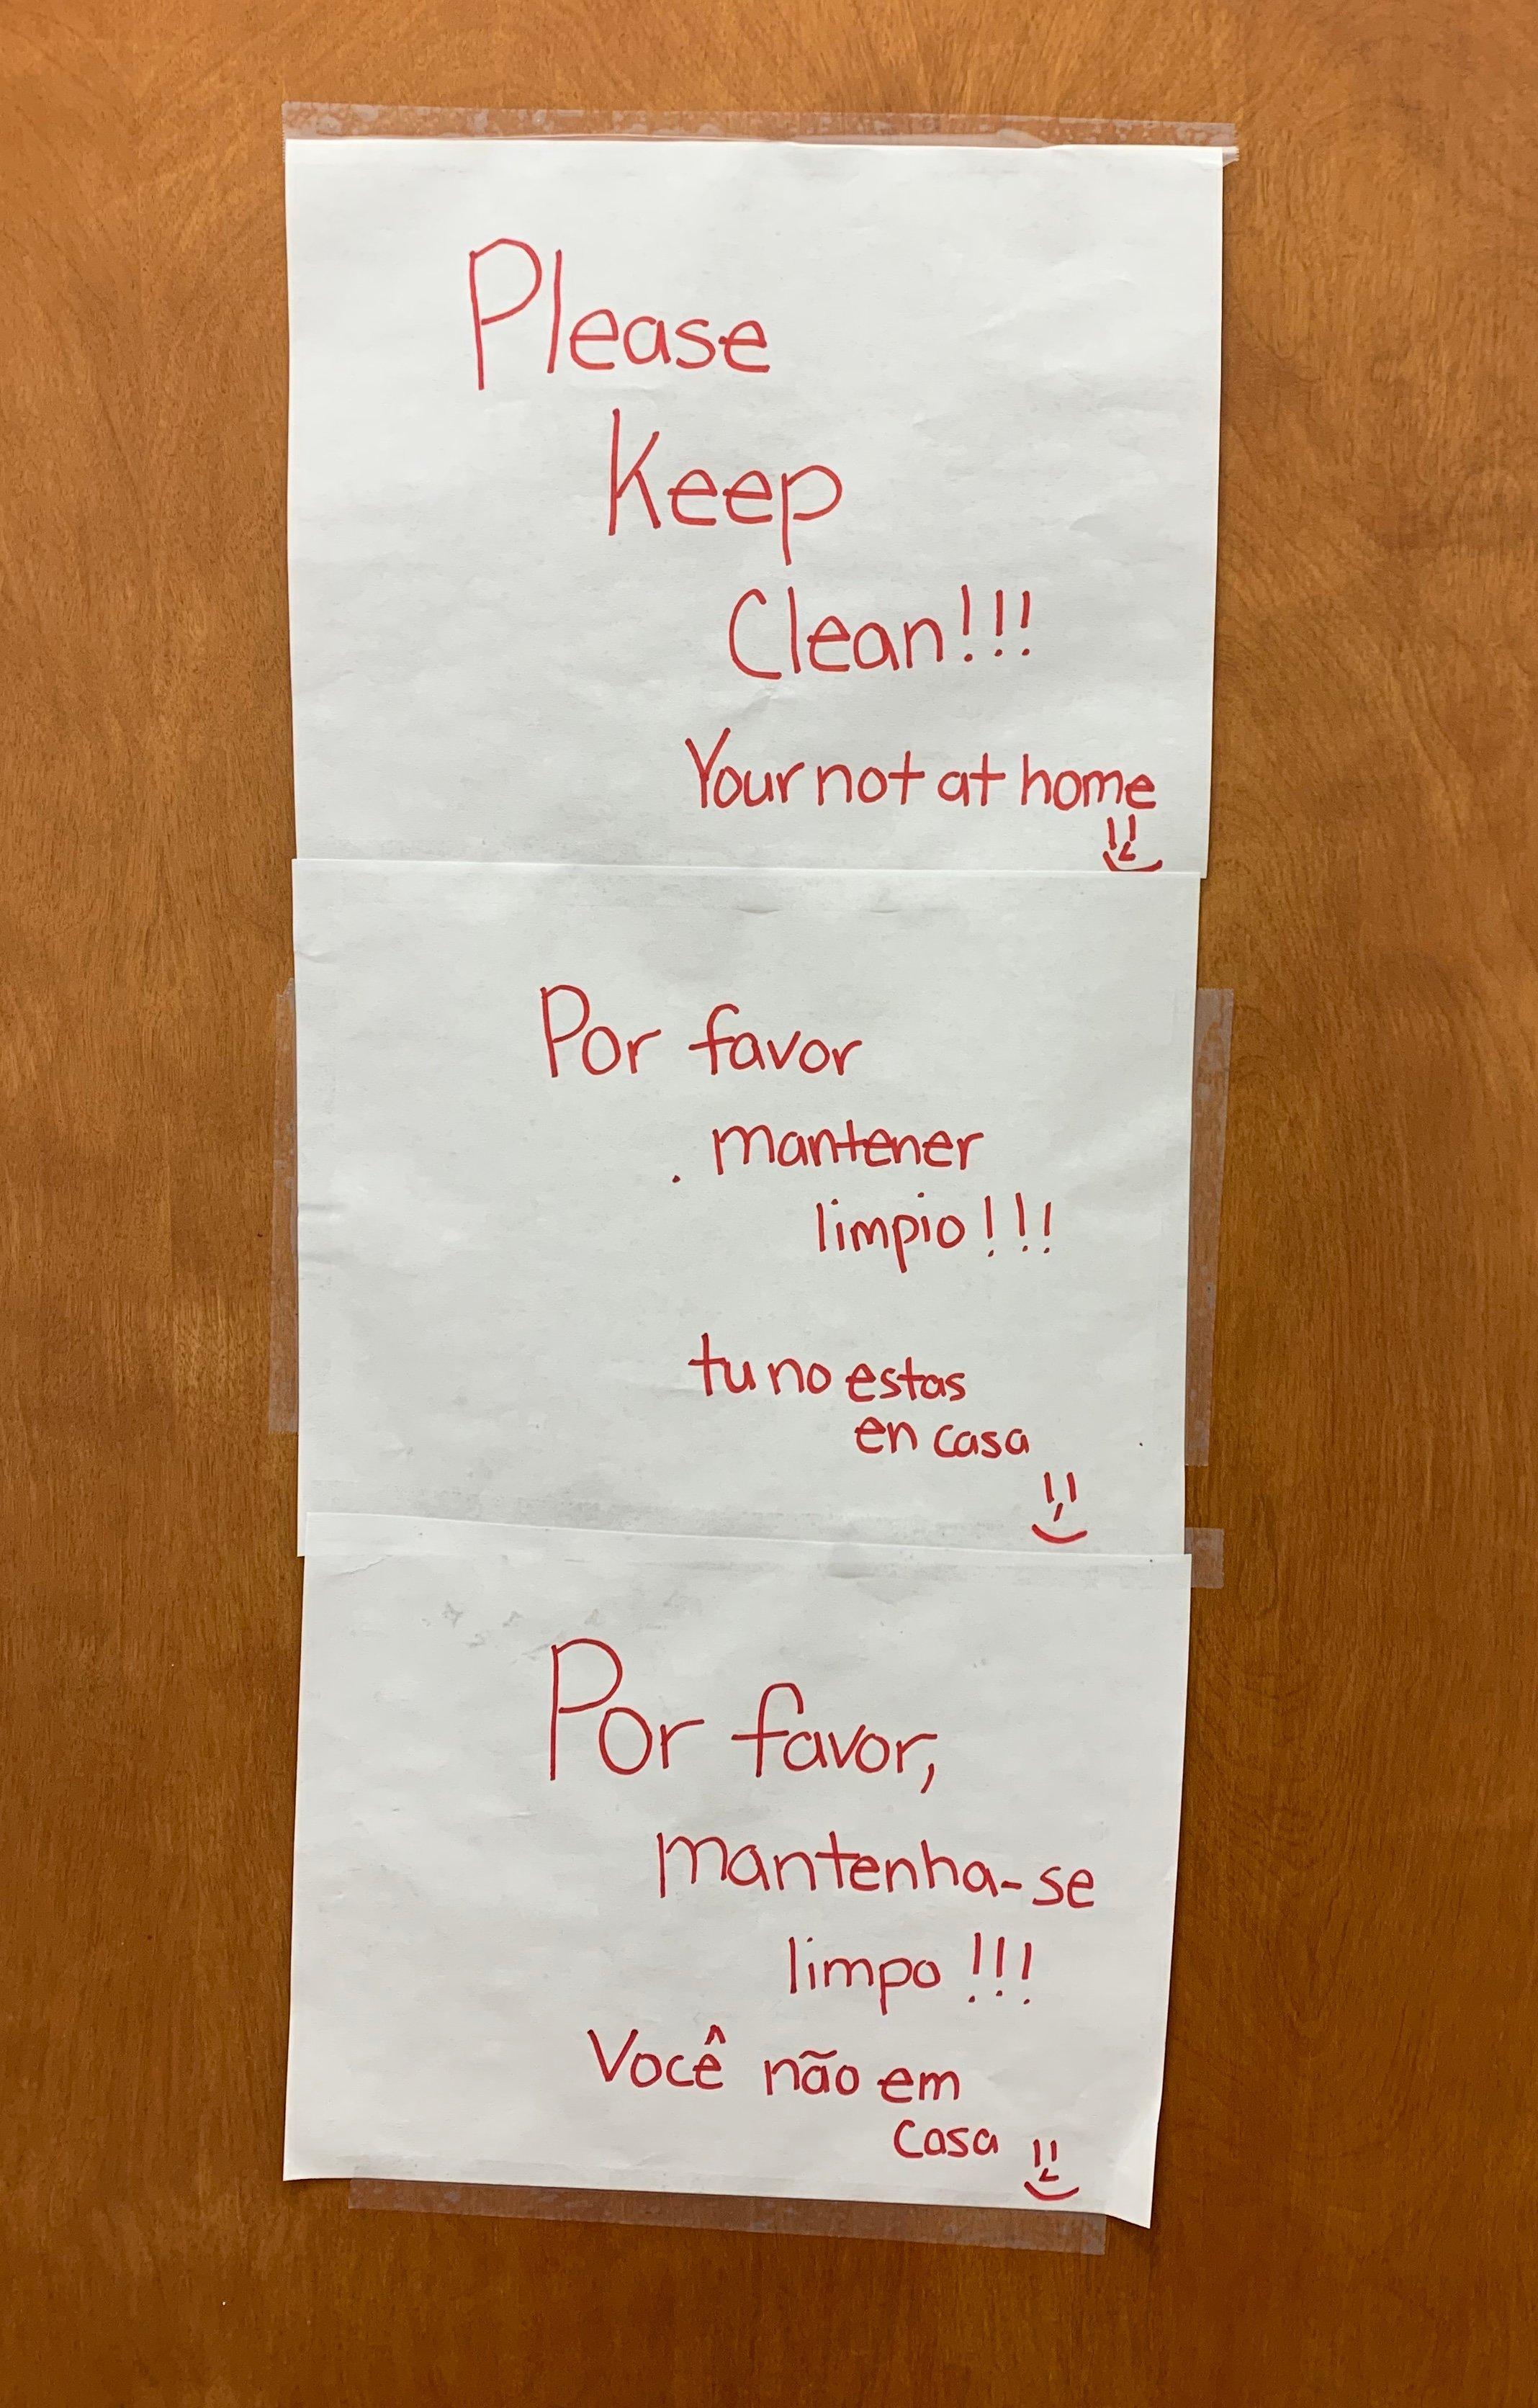 Please
Keep
Clean!!!
Your not at home
Por favor
mantener
limpio!!!
tu no estas
en casa
Por favor,
mantenha-se
limpo!!!
Você não em
casa